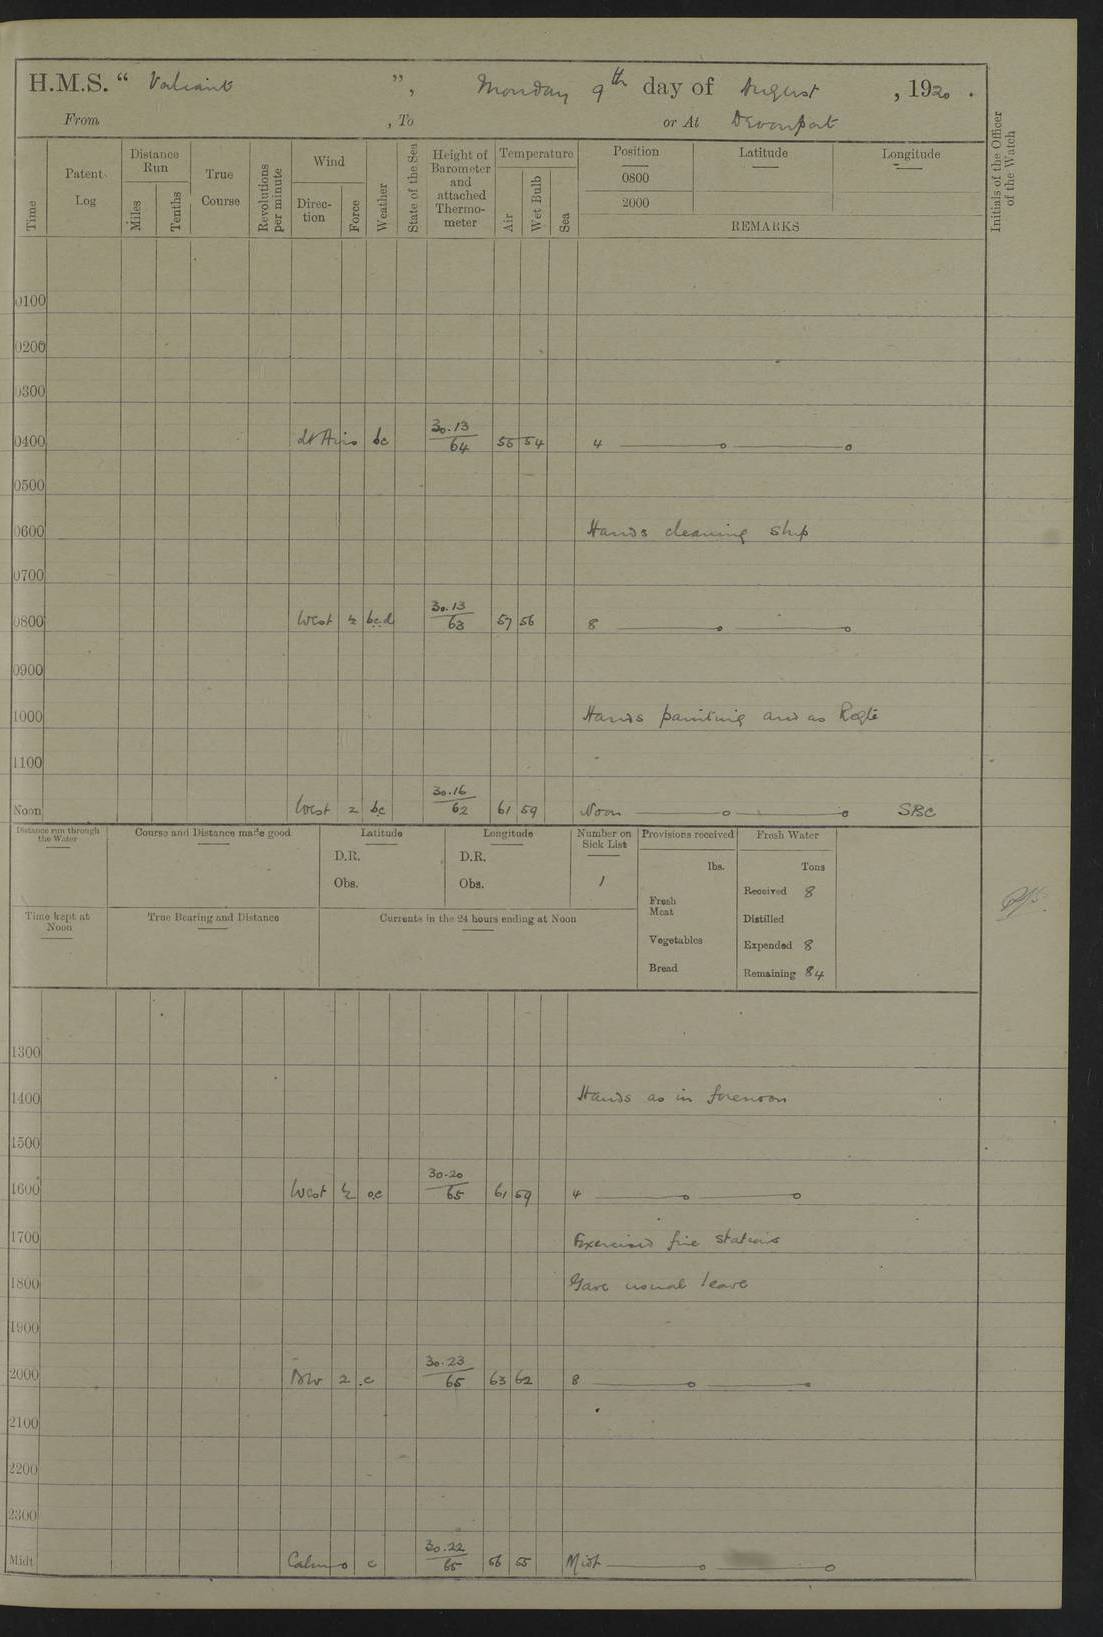 H.M.S. “ Valiant ”, Monday 9th day of August , 1920 .
From , To or At Devonport
Time
Patent Log
Distance Run
Miles
Tenths
True Course
Revolutions per minute
Wind
Direction
Force
Weather
State of the Sea
Height of Barometer and attached Thermometer
Temperature
Air
Wet Bulb
Sea
Position
0800
2000
Latitude
Longitude
REMARKS
Initials of the Officer of the Watch
0100
0200
0300
0400 Lt Airs bc 30.13 64 55 54 4
0500
0600 Hands cleaning ship
0700
0800 West bcd 30.13 63 57 56 8
0900
1000 Hands painting and as Reqte
1100
Noon West 2 bc 30.16 62 61 59 Noon SBC
Distance run through the Water
Course and Distance made good
Latitude
D.R.
Obs.
Longitude
D.R.
Obs.
Number on Sick List
1
Provisions received
lbs.
Fresh Meat
Vegetables
Bread
Fresh Water
Tons
Received 8
Distilled
Expended 8
Remaining 84
Time kept at Noon
True Bearing and Distance
Currents in the 24 hours ending at Noon
1300
1400 Hands as in forenoon
1500
1600 West oc 30.20 65 61 59 4
1700 Exercised fire stations
1800 Gave usual leave
1900
2000 2 c 30.23 65 63 62 8
2100
2200
2300
Midt. Calm 0 c 30.22 65 56 55 Midt